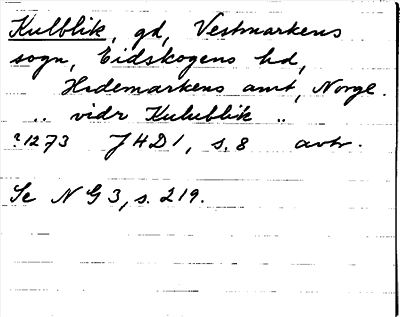 Kulblik, gd, Vestmarkens
sogn, Eidskogens hd,
Hedemarkens amt, Norge.
.. vidr Kulublik ..
?1273 J4D1, s. 8 avtr.
Se NG 3, s. 219.